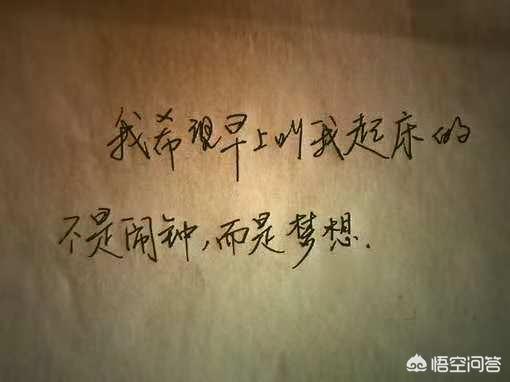 我希望早上叫我起床的
不是闹钟,而是梦想.
悟空问答